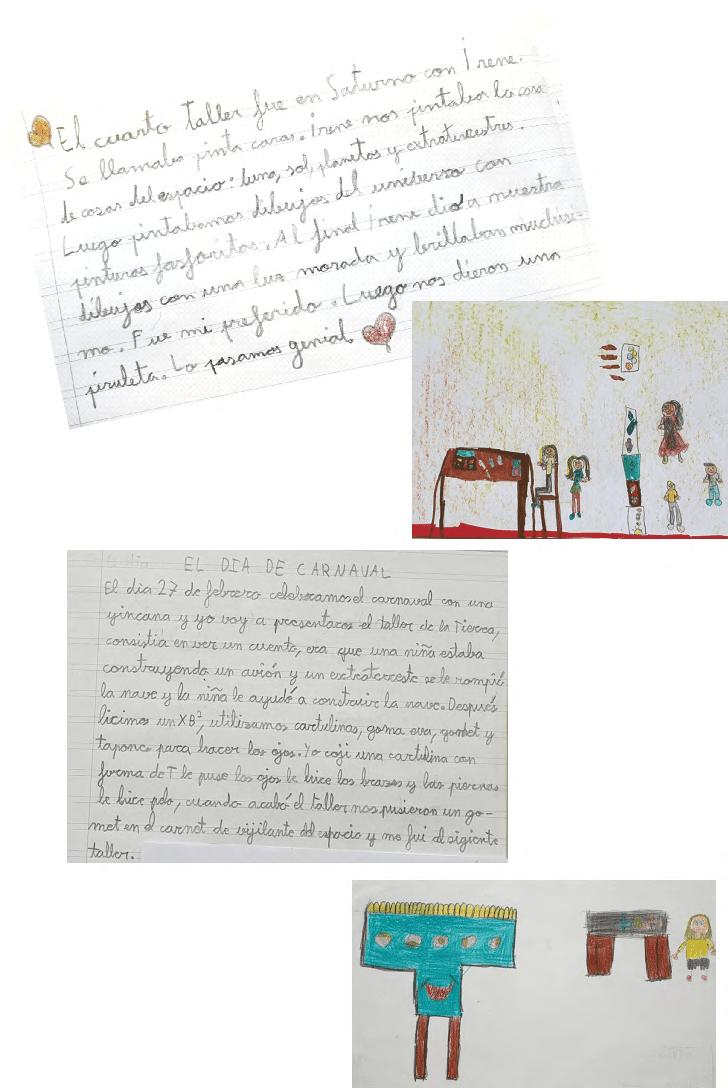 El cuarto taller fue en Saturno con Irene.
Se llamaba pinta caras. Irene nos pintaba la cara
de cosas del espacio: luna, sol, planetas y extraterrestres.
Luego pintabamos dibujos del universo con
pinturas fosforitas. Al final Irene dio a nuestro
dibujos con una luz morada y brillaban muchisi-
mo. Fue mi preferido. Luego nos dieron una
piruleta. Lo pasamos genial
EL DIA DE CARNAVAL
El dia 27 de febrero celebramos el carnaval con una
yincana y yo voy a presentaros el taller de la Tierra,
consistia en ver un cuento, era que una niña estaba
construyendo un avión y un extraterreste se le rompió
la nave y la niña le ayudó a construir la nave. Después
licimos un XB², utilizamos cartulinas, goma eva, gomet y
tapones para hacer los ojos. Yo coji una cartulina con
forma de T le puse los ojos le hice los brazos y las piernas
le hice pelo, cuando acabó el taller nos pusieron un go-
met en el carnet de vijilante del espacio y me fui al sigiente
taller.